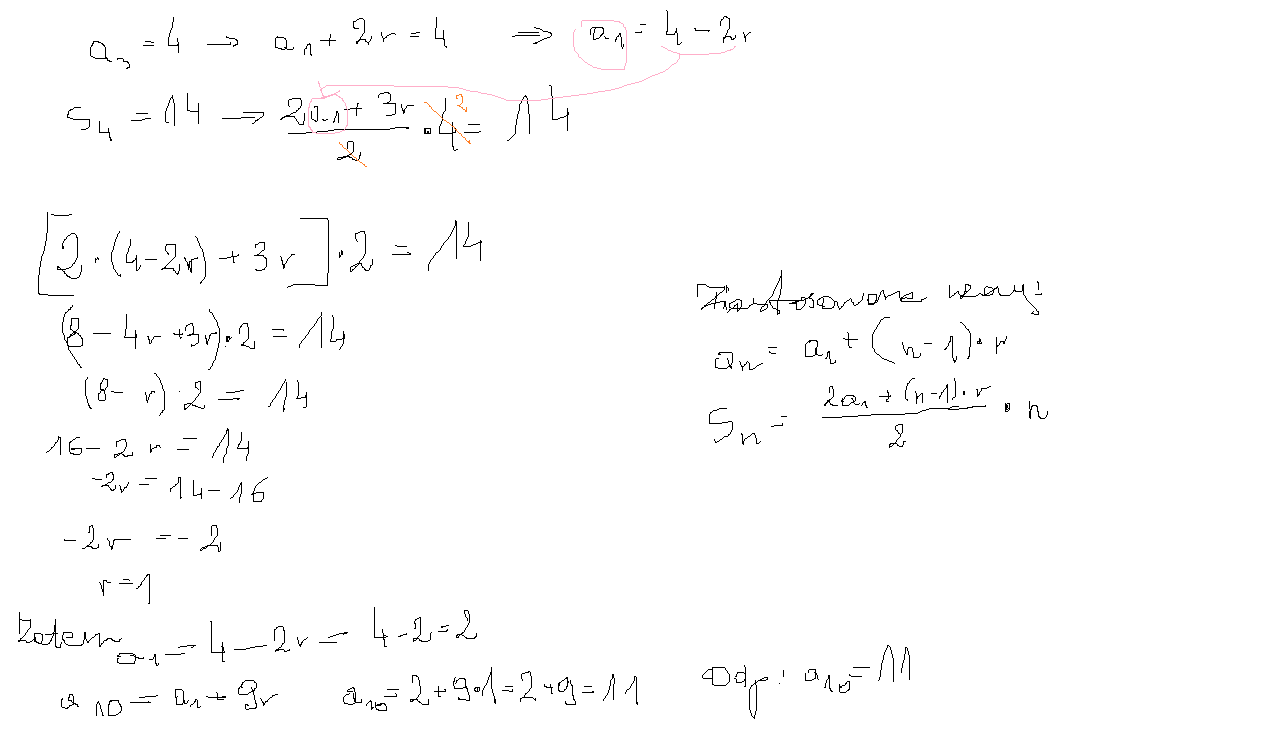 a₃ = 4 → a₁ + 2r = 4 ⇒ a₁ = 4 - 2r
S₄ = 14 → (2a₁ + 3r)/2 · 4 = 14
2
[2 · (4 - 2r) + 3r] · 2 = 14
(8 - 4r + 3r) · 2 = 14
(8 - r) · 2 = 14
16 - 2r = 14
-2r = 14 - 16
-2r = -2
r = 1
Zatem a₁ = 4 - 2r = 4 - 2 = 2
a₁₀ = a₁ + 9r a₁₀ = 2 + 9·1 = 2 + 9 = 11
Zastosowane wzory:
aₙ = a₁ + (n - 1) · r
Sₙ = (2a₁ + (n-1) · r)/2 · n
Odp: a₁₀ = 11